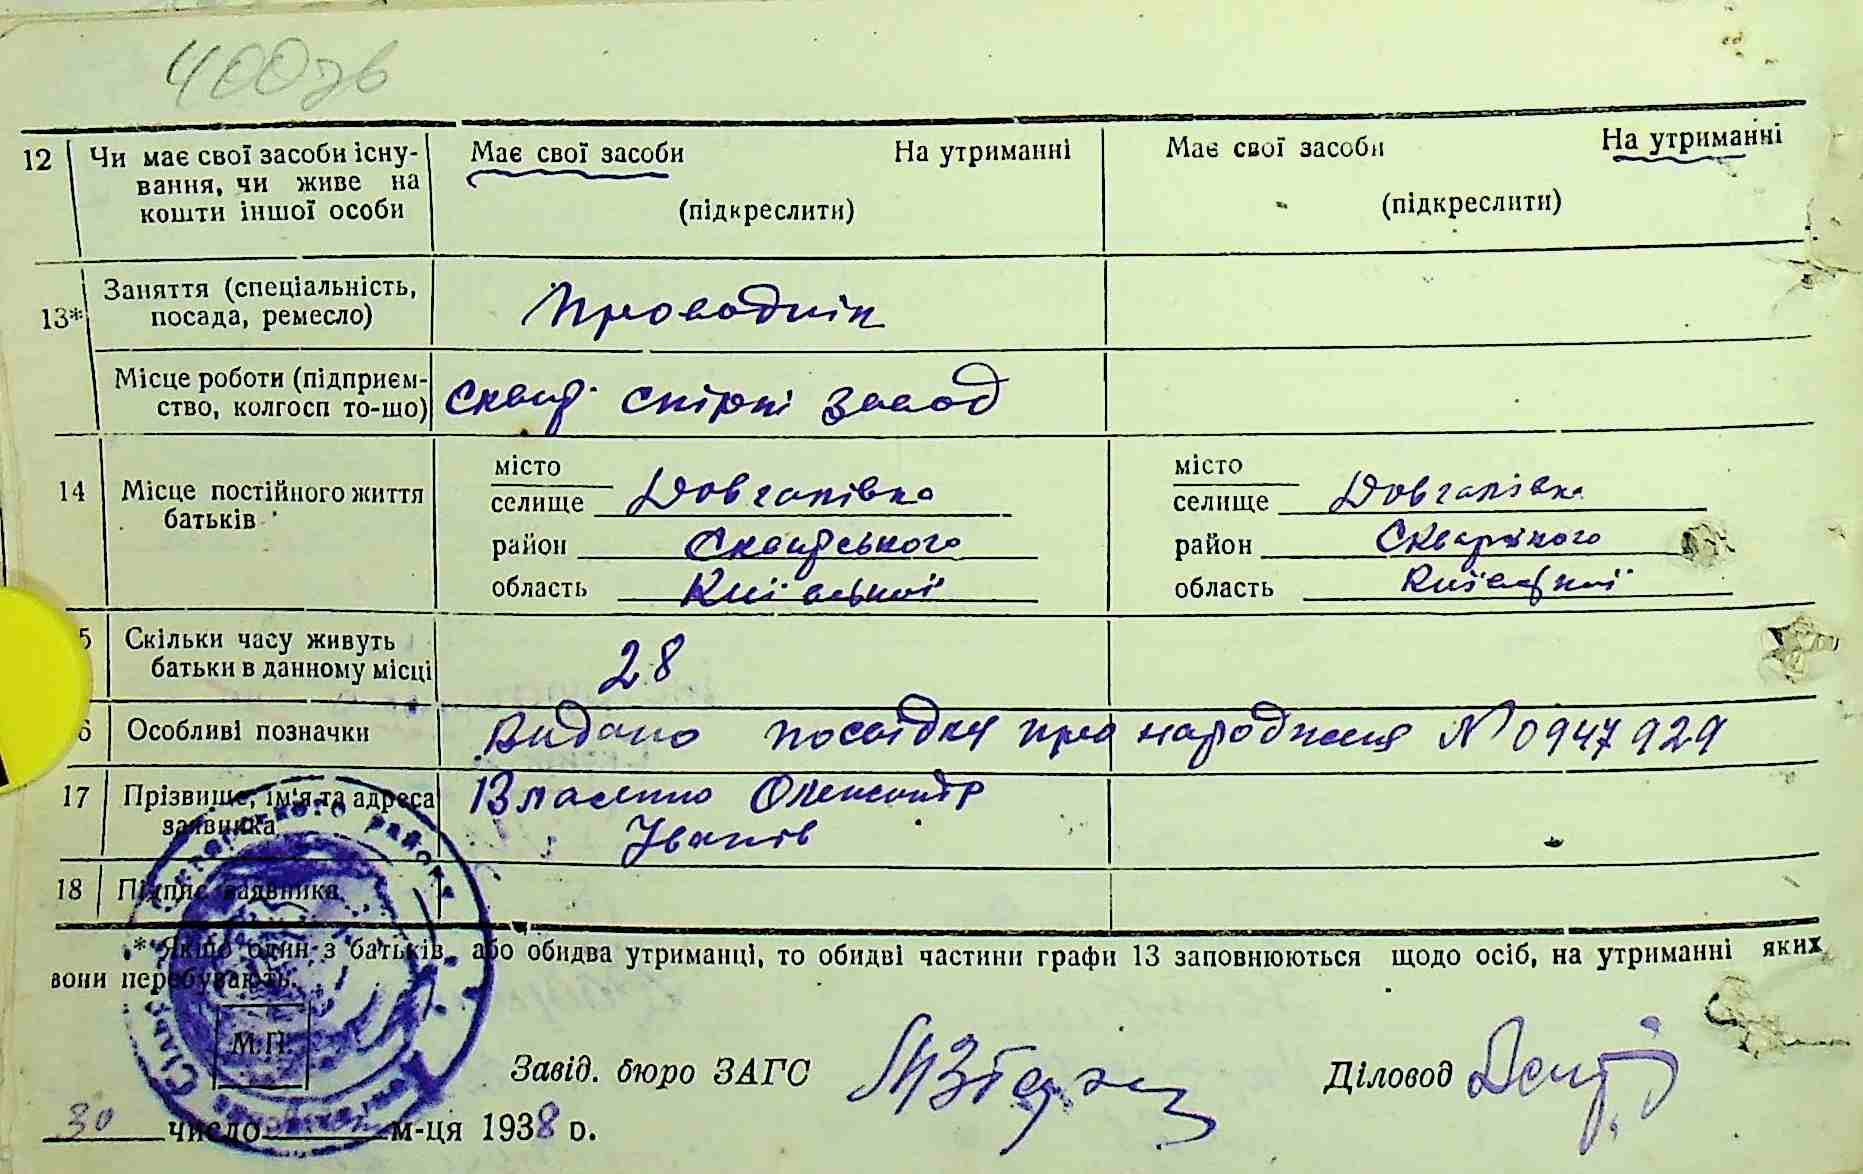 400зв
12 Чи має свої засоби існу- Має свої засоби На утриманні Має свої засоби На утриманні
вання, чи живе на
кошти іншої особи (підкреслити) (підкреслити)
13* Заняття (спеціальність, Проводнік
посада, ремесло)
Місце роботи (підприєм- Сквир. спірні завод
ство, колгосп то-що)
14 Місце постійного життя місто місто
батьків селище Довгалівка селище Довгалівка
район Сквирського район
область Київської область Київської
5 Скільки часу живуть 28
батьки в данному місці
6 Особливі позначки Видано посвідку про народження № 0947929
17 Прізвище, ім'я та адреса Власенко Олександр
заявника Іванів
18 Підпис заявника
* Якщо один з батьків, або обидва утриманці, то обидві частини графи 13 заповнюються щодо осіб, на утриманні яких
вони перебувають.
М.П.
Завід. бюро ЗАГС Діловод
30 число м-ця 1938 р.